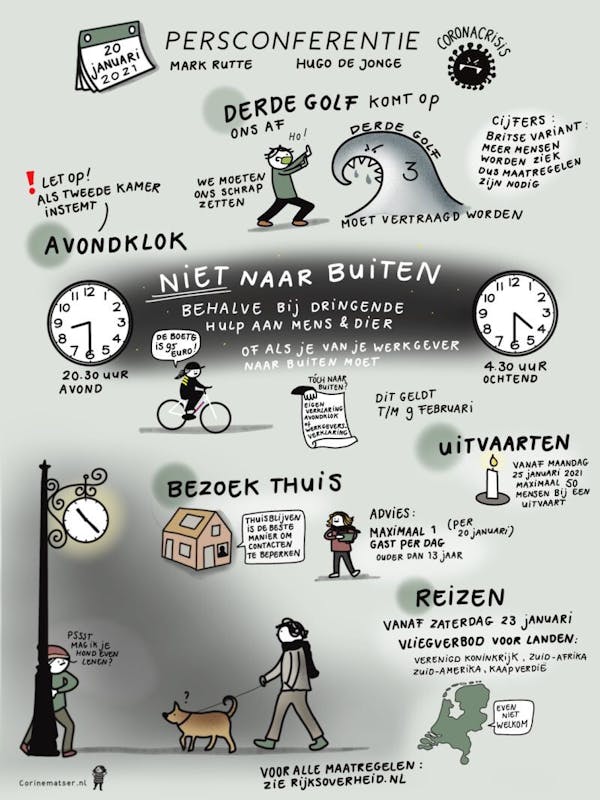 20
JANUARI
2021
PERSCONFERENTIE
MARK RUTTE HUGO DE JONGE
CORONACRISIS
DERDE GOLF KOMT OP
ONS AF
HO!
DERDE GOLF
3
CIJFERS:
BRITSE VARIANT:
MEER MENSEN
WORDEN ZIEK
DUS MAATREGELEN
ZIJN NODIG
WE MOETEN
ONS SCHRAP
ZETTEN
MOET VERTRAAGD WORDEN
! LET OP!
ALS TWEEDE KAMER
INSTEMT
AVONDKLOK
NIET NAAR BUITEN
BEHALVE BIJ DRINGENDE
HULP AAN MENS & DIER
OF ALS JE VAN JE WERKGEVER
NAAR BUITEN MOET
12
1
2
3
4
5
6
7
8
9
10
11
20.30 UUR
AVOND
12
1
2
3
4
5
6
7
8
9
10
11
4.30 UUR
OCHTEND
DE BOETE
IS 95
EURO!
TÓCH NAAR
BUITEN?
EIGEN
VERKLARING
AVONDKLOK
OF
WERKGEVERS-
VERKLARING
DIT GELDT
T/M 9 FEBRUARI
UITVAARTEN
VANAF MAANDAG
25 JANUARI 2021
MAXIMAAL 50
MENSEN BIJ EEN
UITVAART
BEZOEK THUIS
THUISBLIJVEN
IS DE BESTE
MANIER OM
CONTACTEN
TE BEPERKEN
ADVIES:
MAXIMAAL 1 (PER
GAST PER DAG 20 JANUARI)
OUDER DAN 13 JAAR
REIZEN
VANAF ZATERDAG 23 JANUARI
VLIEGVERBOD VOOR LANDEN:
VERENIGD KONINKRIJK, ZUID-AFRIKA
ZUID-AMERIKA, KAAPVERDIE
EVEN
NIET
WELKOM
PSSST
MAG IK JE
HOND EVEN
LENEN?
?
VOOR ALLE MAATREGELEN:
ZIE RIJKSOVERHEID.NL
Corinematser.nl